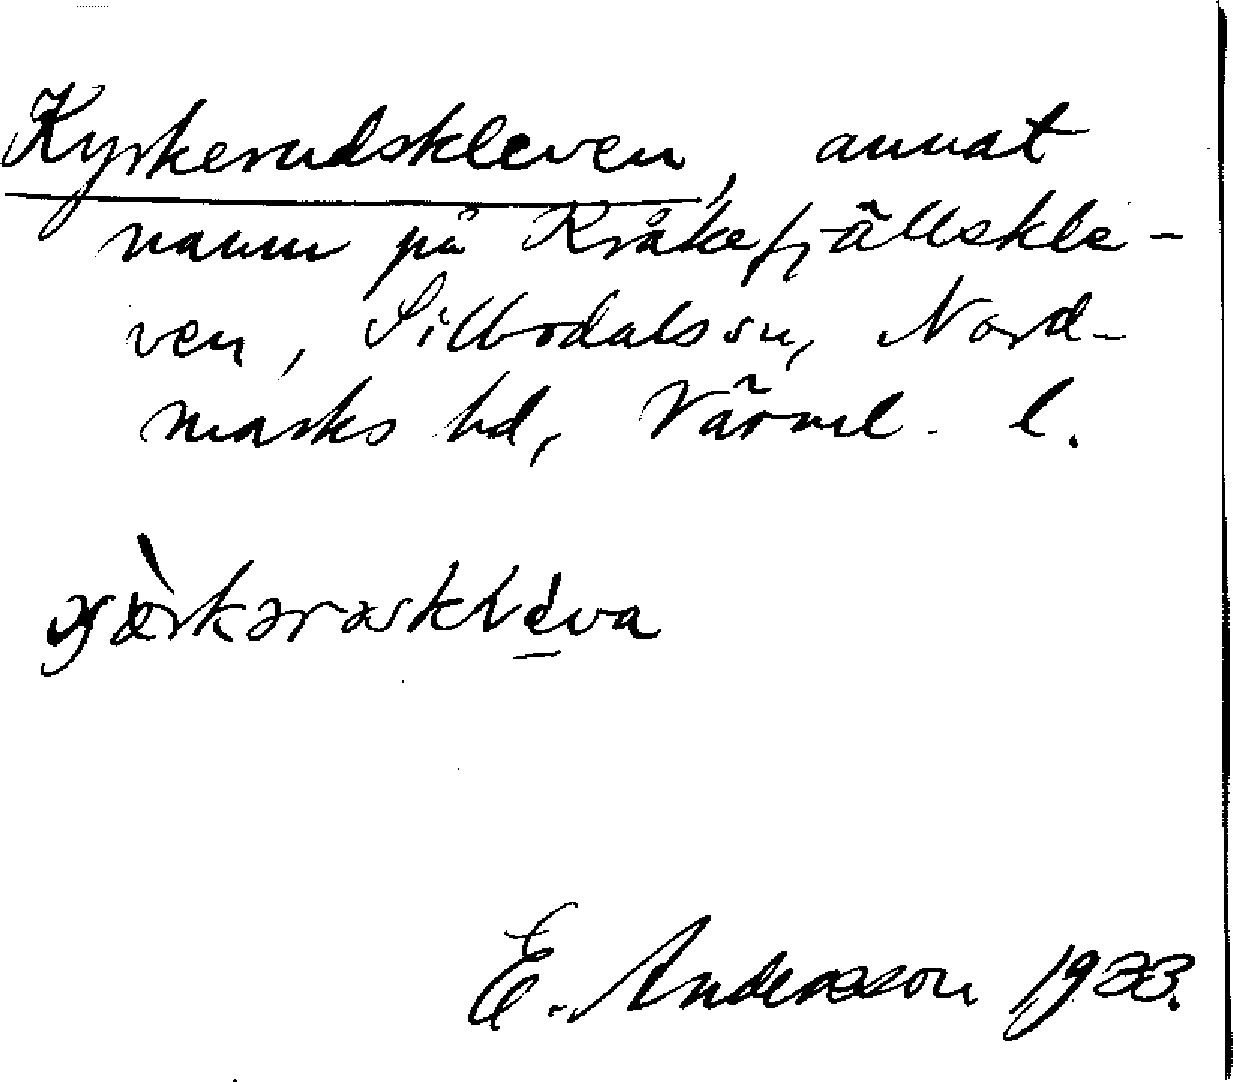 Kyrkerudskleven, annat
namn på Kråkefjällskle-
ven, Silbodals sn, Nord-
marks hd, Värml. l.
E. Andersson 1933.